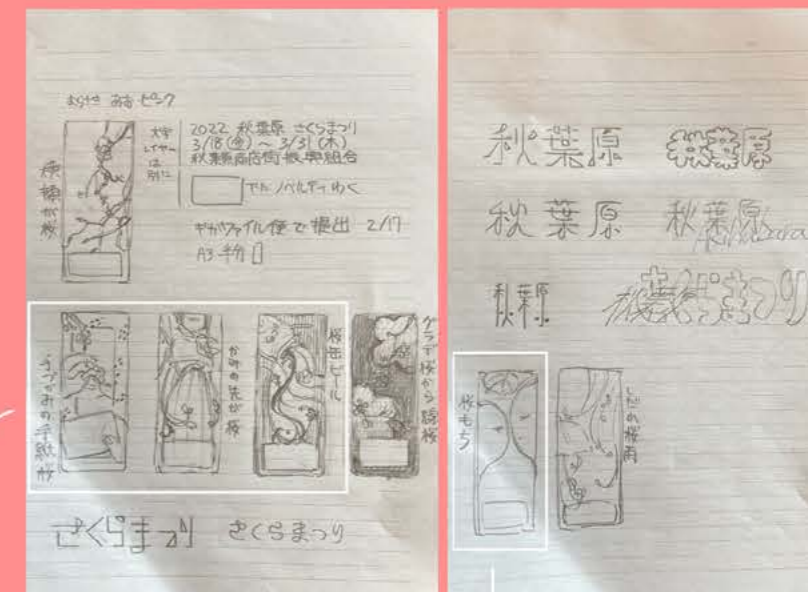 むらさき みお ピンク
文字
レイヤー
は
別に
2022 秋葉原 さくらまつり
3/18(金)〜3/31(木)
秋葉原商店街振興組合
でた ノベルティわく
ギガファイル便で提出 2/17
A3半分
が桜
かみの先が桜
桜缶ビール
グラデ桜から
さくらまつり さくらまつり
秋葉原 秋葉原
秋葉原 秋葉原
秋葉原
さくらまつり
桜もち
しだれ桜雨